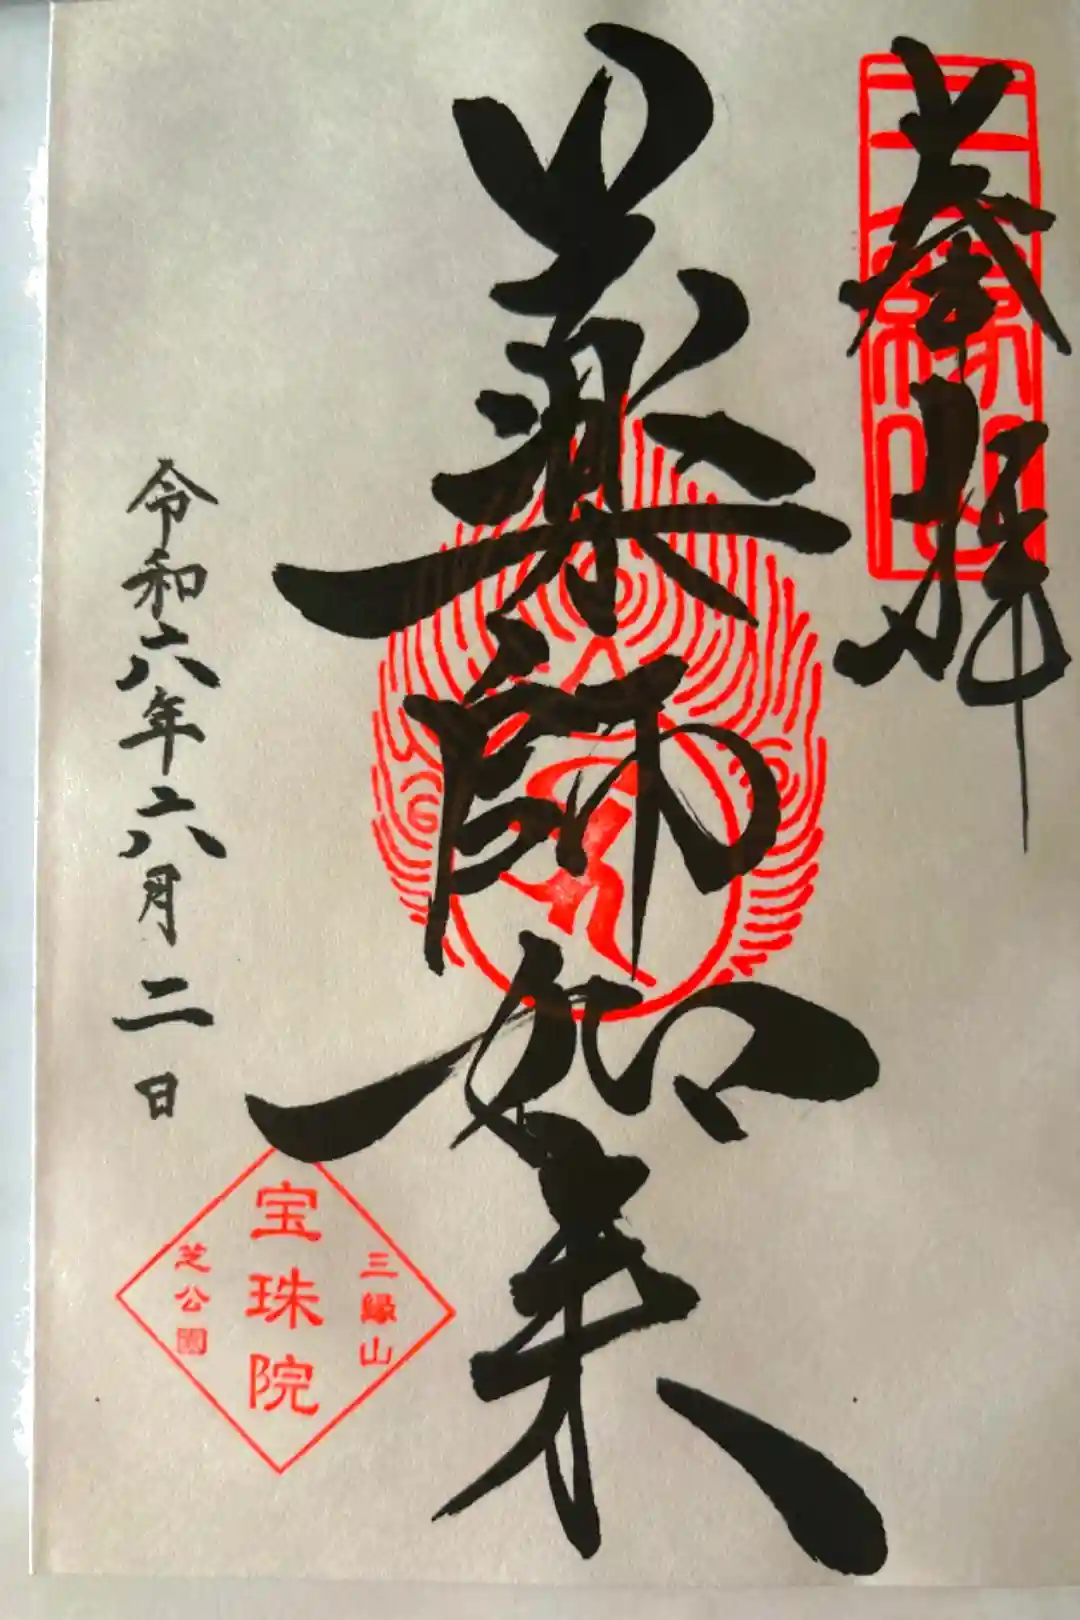 奉拝
三縁山
薬師如来
令和六年六月二日
三縁山
宝珠院
芝公園